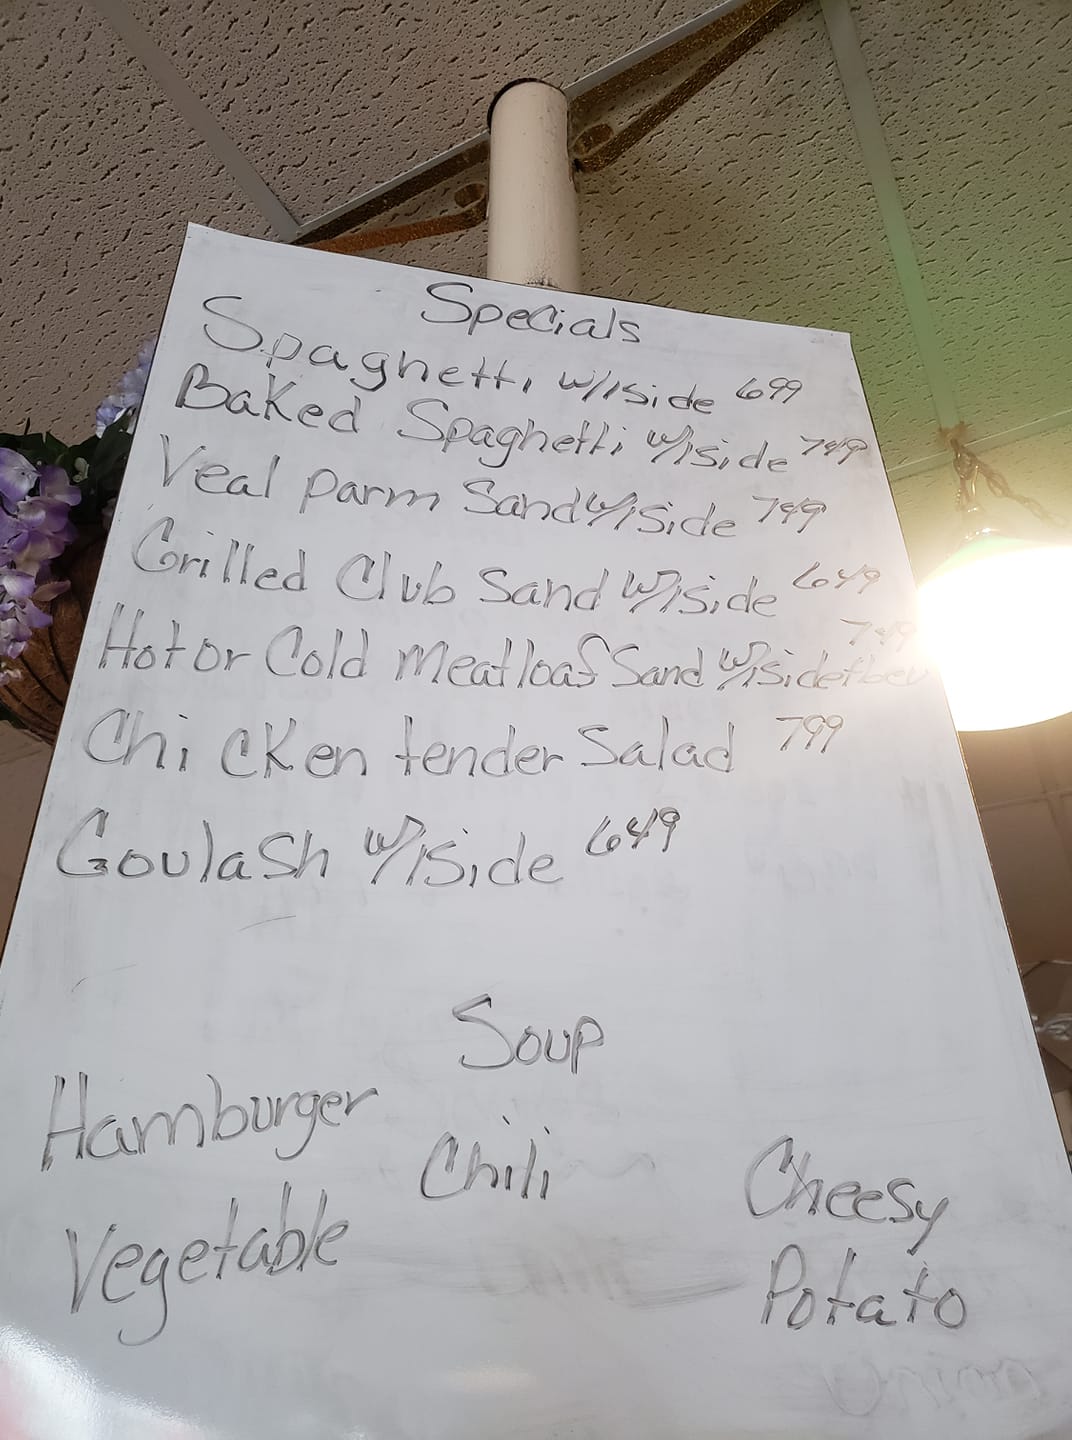 Specials
Spaghetti w/1side 699
Baked Spaghetti w/1side 749
Veal parm Sand w/1side 749
Grilled Club Sand w/1side 649
Hot or Cold meatloaf Sand w/1side+bev 749
Chicken tender Salad 799
Goulash w/1side 649
Soup
Hamburger
Vegetable
Chili
Cheesy
Potato